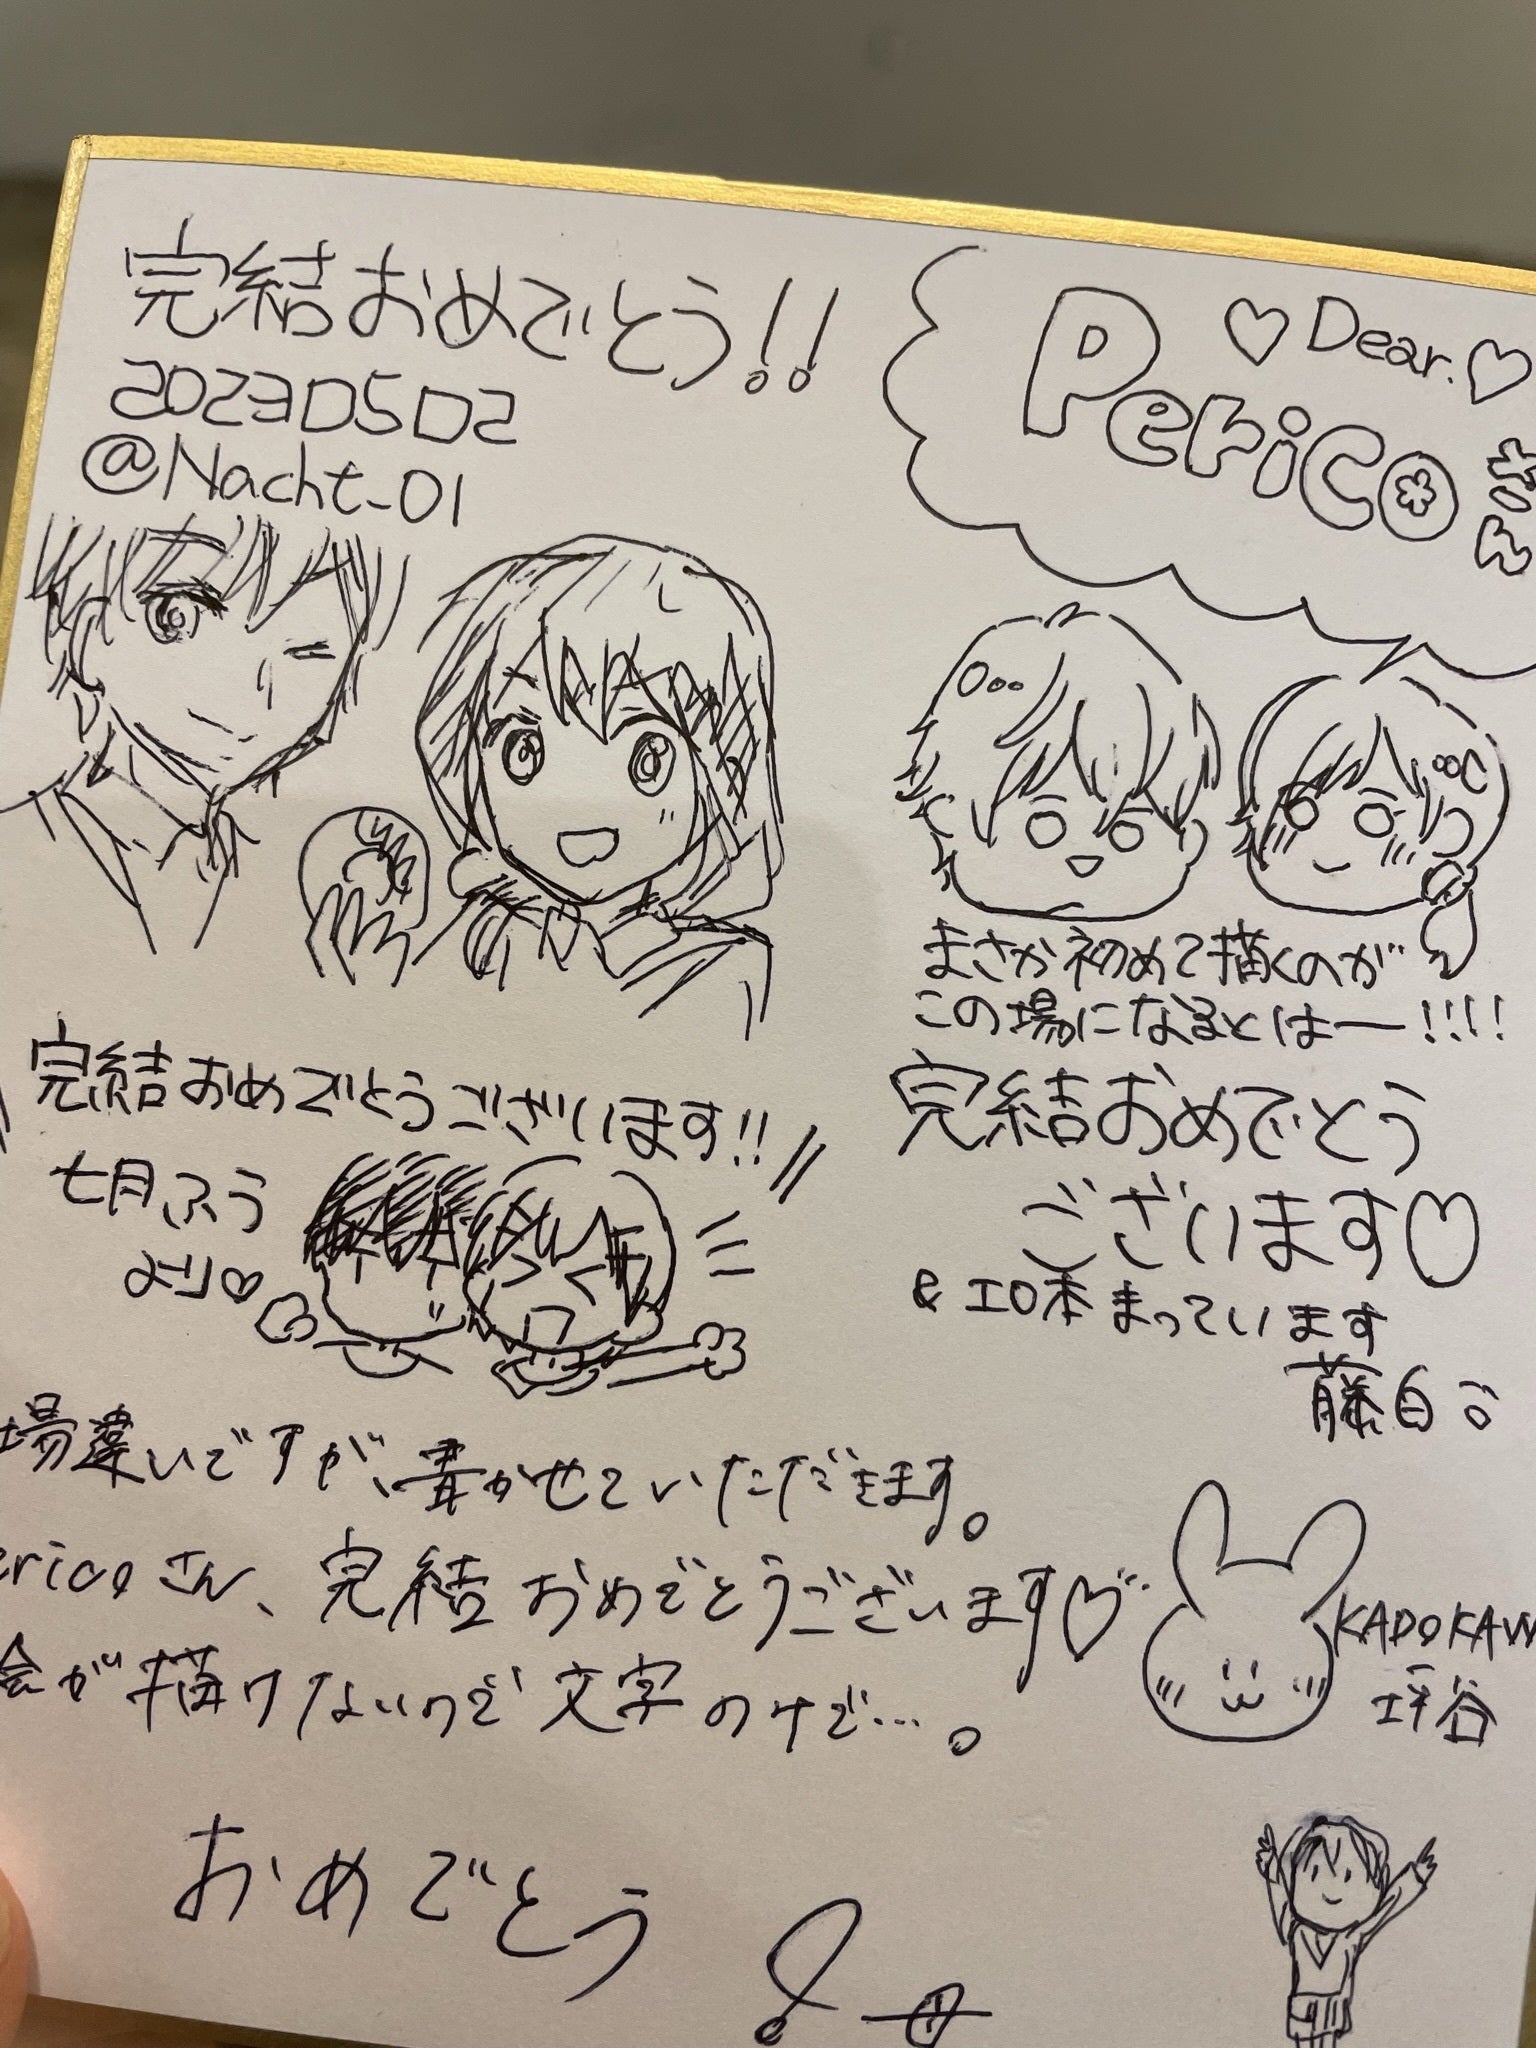 完結おめでとう!!
20230502
@Nacht_01
♡Dear.♡
Pericoさん
まさか初めて描くのが
この場になるとはー!!!!
完結おめでとう
ございます♡
& エロ本まっています
藤白
完結おめでとうございます!!
七月ふう
より♡
場違いですが、書かせていただきます。
ericoさん、完結おめでとうございます♡
絵が描けないので文字のけで…。
KADOKAW
坪谷
おめでとう